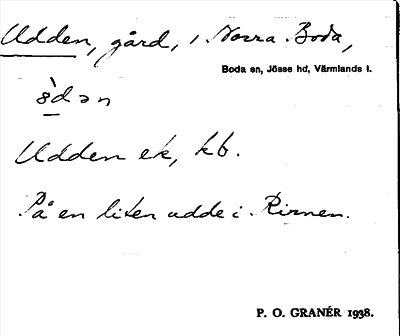 Udden, gård, i Norra Boda,
Boda sn, Jösse hd, Värmlands l.
Udden ek, kb.
På en liten udde i Rinnen.
P. O. GRANÉR 1938.